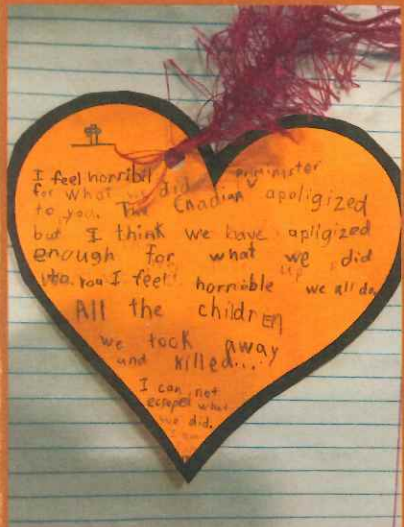 I feel horribil priminster
for what we did
to you. The Cnadian apoligized
but I think we have apligized
enough for what we did
to you I feel horrible up we all do
All the childrEn
we tock away
and killed...
I can not
what
we did.